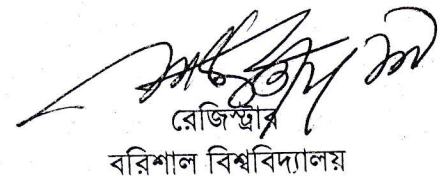 রেজিস্ট্রার
বরিশাল বিশ্ববিদ্যালয়